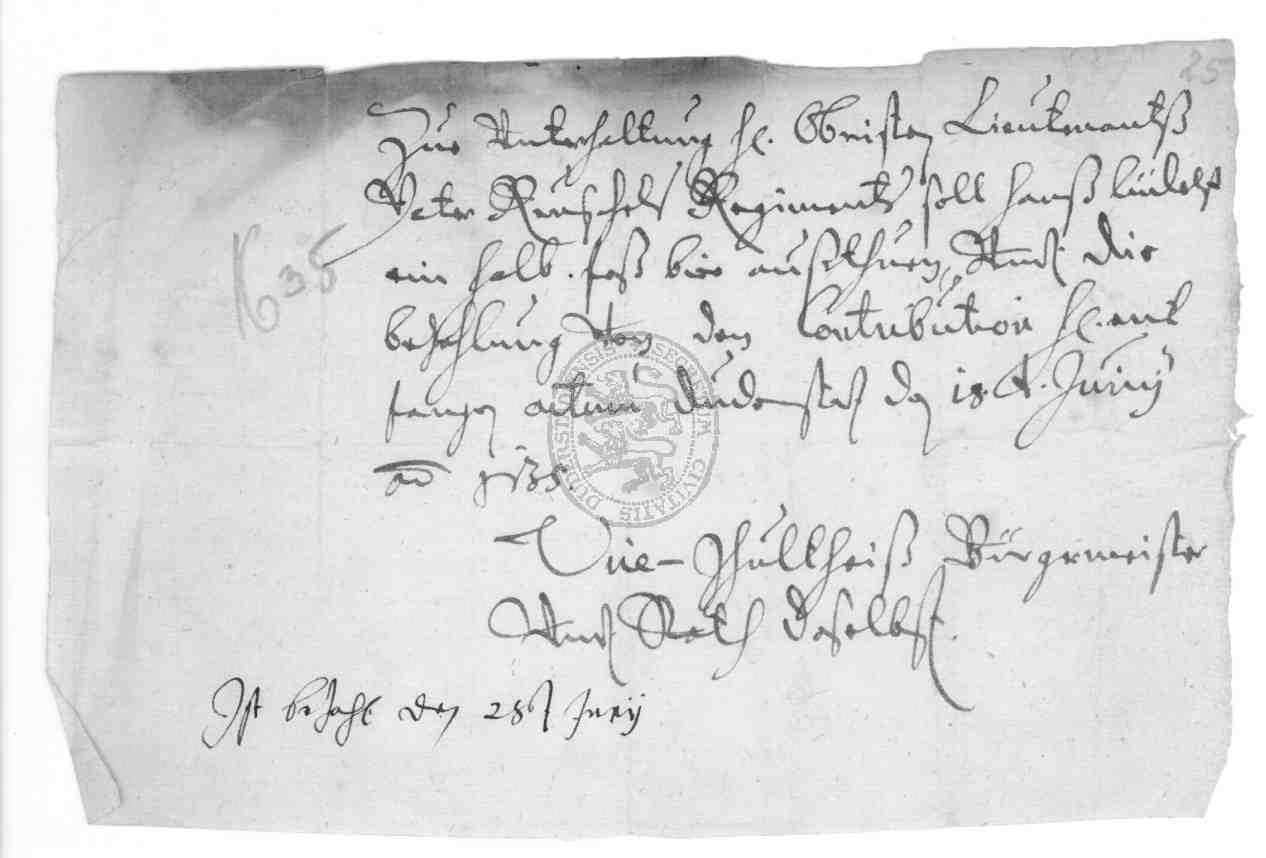 25
Zue Unterhaltung h. Obristen Lieutenantß
Peter Regiments soll hanß
ein halb faß bier außthuen, Undt die
bezahlung von den Contribution h. ent
fangen actum Duderstat den 18. t. Junij
ao 1635.
1635
Vice-Schultheiß Bürgermeister
Undt Rath daselbst.
Ist bezahlt den 28t Junij
SECRETUM CIVITATIS